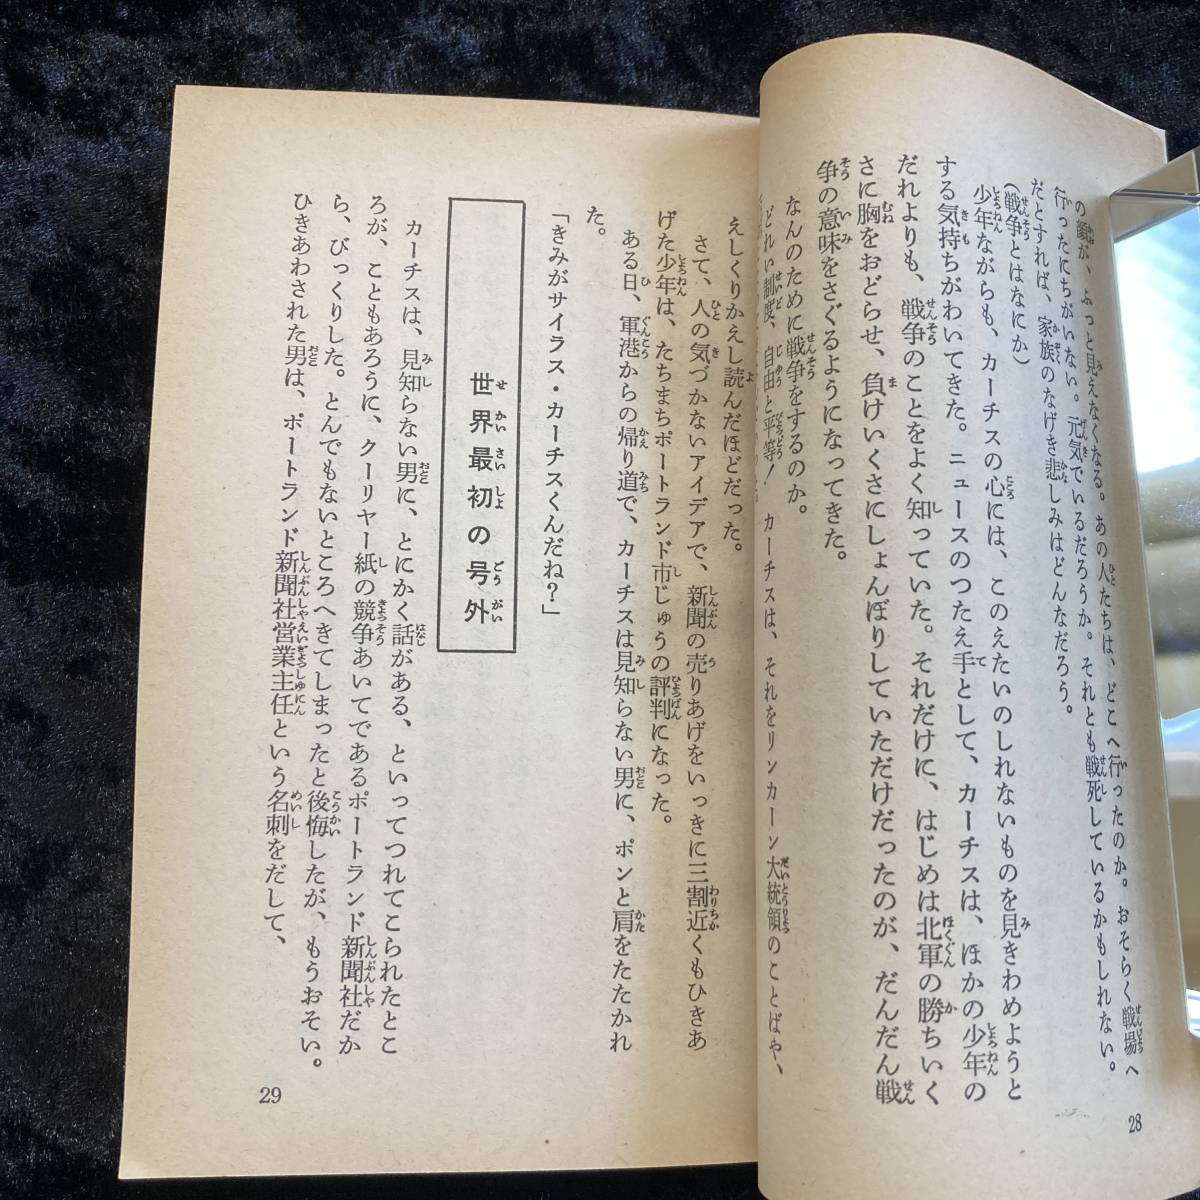 の顔が、ふっと見えなくなる。あの人たちは、どこへ行ったのか。おそらく戦場へ
行ったにちがいない。元気でいるだろうか。それとも戦死しているかもしれない。
だとすれば、家族のなげき悲しみはどんなだろう。
(戦争とはなにか)
少年ながらも、カーチスの心には、このえたいのしれないものを見きわめようと
する気持ちがわいてきた。ニュースのつたえ手として、カーチスは、ほかの少年の
だれよりも、戦争のことをよく知っていた。それだけに、はじめは北軍の勝ちいく
さに胸をおどらせ、負けいくさにしょんぼりしていただけだったのが、だんだん戦
争の意味をさぐるようになってきた。
なんのために戦争をするのか。
どれい制度、自由と平等! カーチスは、それをリンカーン大統領のことばや、
28
えしくりかえし読んだほどだった。
さて、人の気づかないアイデアで、新聞の売りあげをいっきに三割近くもひきあ
げた少年は、たちまちポートランド市じゅうの評判になった。
ある日、軍港からの帰り道で、カーチスは見知らない男に、ポンと肩をたたかれ
た。
「きみがサイラス・カーチスくんだね?」
世界最初の号外
カーチスは、見知らない男に、とにかく話がある、といってつれてこられたとこ
ろが、こともあろうに、クーリヤー紙の競争あいてであるポートランド新聞社だか
ら、びっくりした。とんでもないところへきてしまったと後悔したが、もうおそい。
ひきあわされた男は、ポートランド新聞社営業主任という名刺をだして、
29